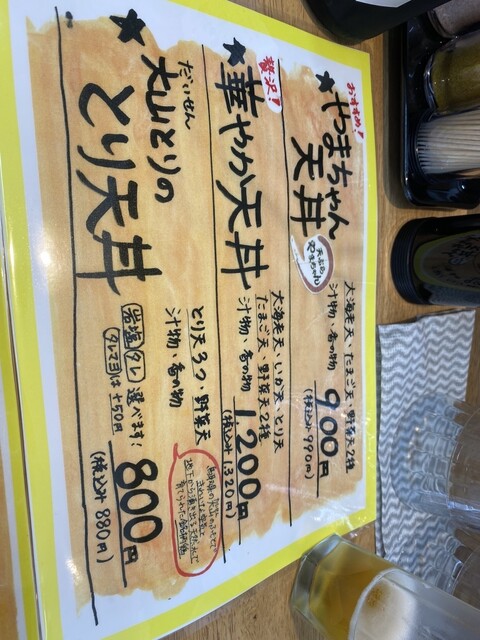 おすすめ!
★やまちゃん
天丼
天ぷら
やまちゃん
大海老天、たまご天、野菜天2種
汁物、香の物
900円
(税込み990円)
贅沢!
★華やか天丼
大海老天、いか天、とり天
たまご天、野菜天2種
汁物、香の物
1200円
(税込み1320円)
★だいせん
大山とりの
とり天丼
とり天3つ、野菜天
汁物、香の物
岩塩 タレ 選べます!
タレマヨは+50円
800円
(税込み880円)
地下から湧き出る天然水で